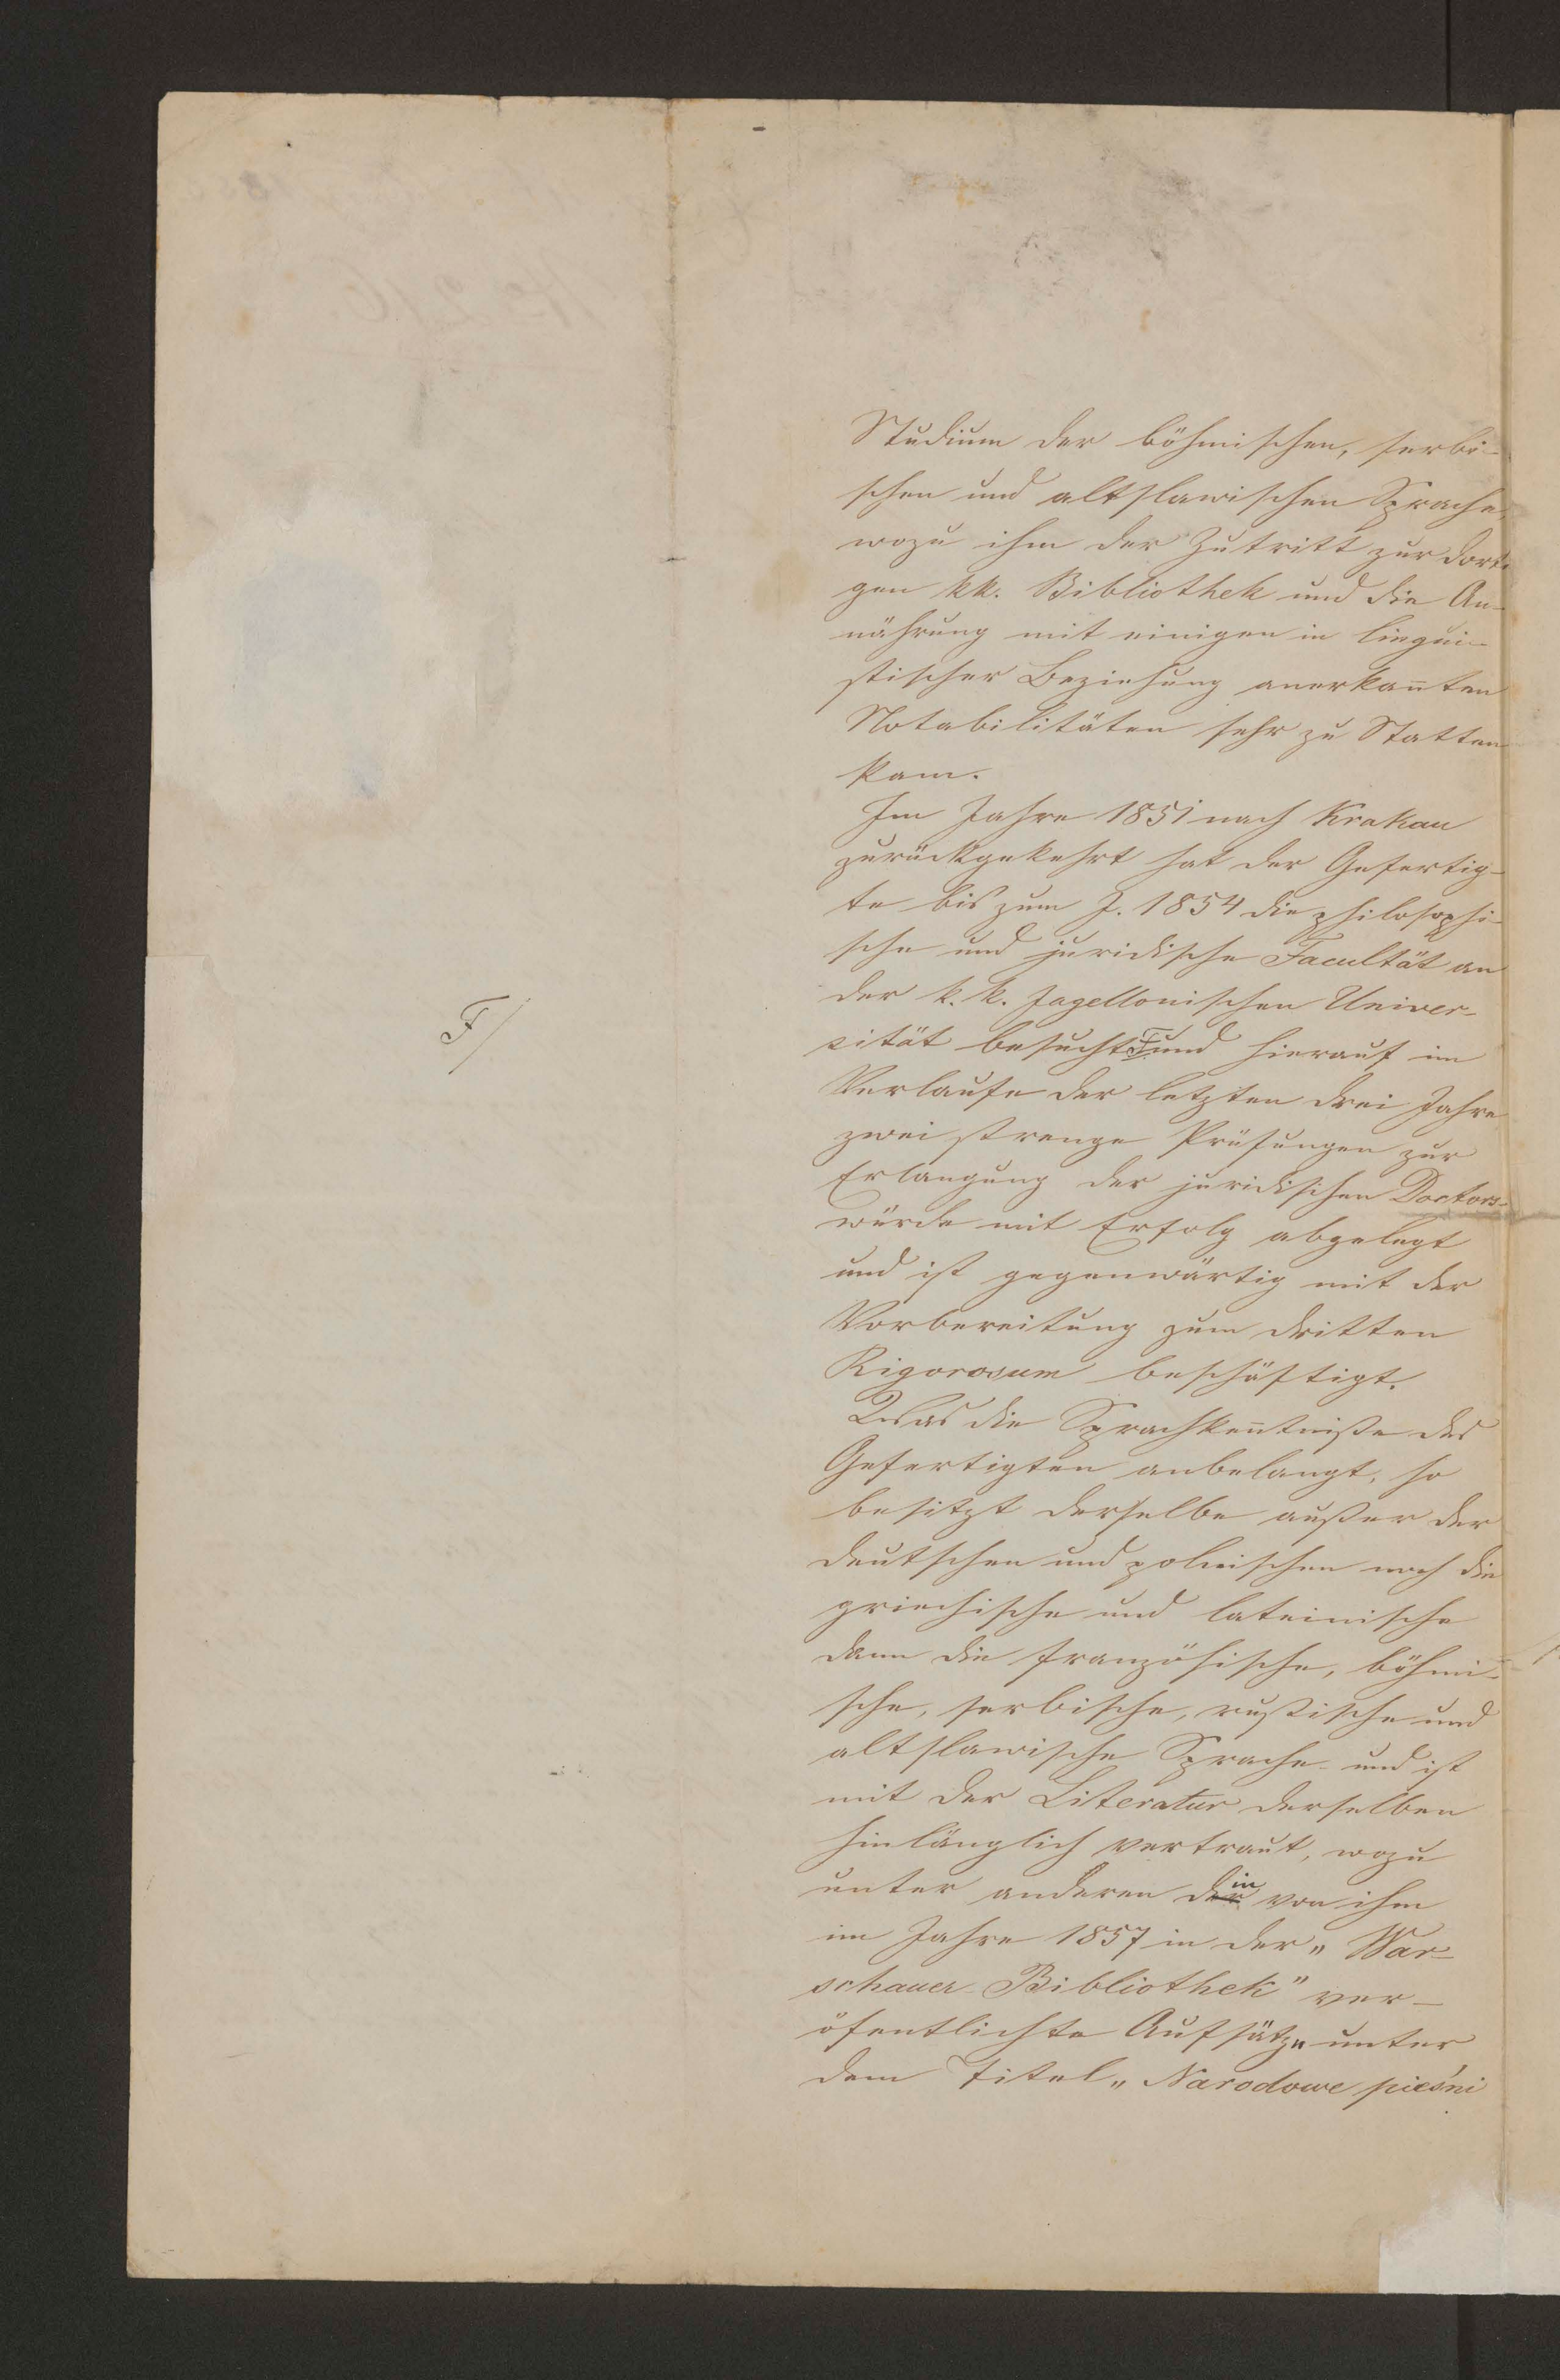 Studium der böhmischen, serbi-
schen und altslawischen Sprache,
wozu ihm der Zutritt zur dorti-
gen kk. Bibliothek und die An-
nährung mit einigen in lingui-
stischer Beziehung anerkan̄ten
Notabilitäten sehr zu Statten
kam.
Im Jahre 1851 nach Krakau
zurückgekehrt hat der Gefertig-
te bis zum J. 1854 die philosophi-
sche und juridische Facultät an
der k. k. Jagellonischen Univer-
F/
sität besucht F und hierauf im
Verlaufe der letzten drei Jahre
zwei strenge Prüfungen zur
Erlangung der juridischen Doctors-
würde mit Erfolg abgelegt
und ist gegenwärtig mit der
Vorbereitung zum dritten
Rigorosum beschäftigt.
Was die Sprachken̄tniße des
Gefertigten anbelangt, so
besitzt derselbe außer der
deutschen und polnischen noch die
griechische und lateinische
dann die französische, böhmi-
sche, serbische, rußische und
altslawische Sprache und ist
mit der Literatur derselben
hinlänglich vertraut, wozu
unter anderen der in von ihm
im Jahre 1857 in der „War-
schauer Bibliothek" ver-
öfentlichte Aufsätze unter
dem Titel „Narodowe pieśni